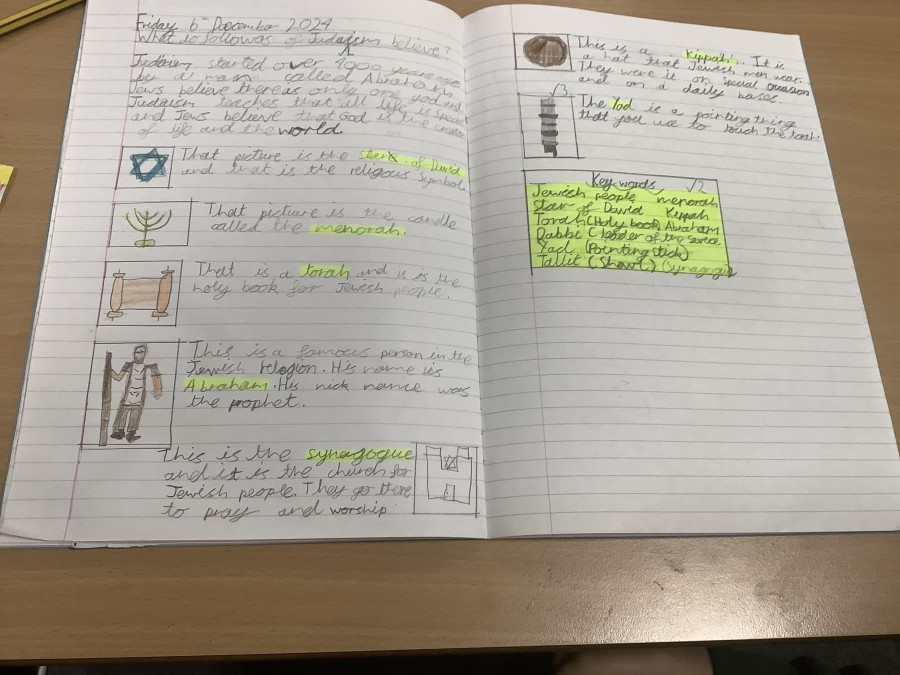 Friday 6th December 2024
What do followers of Judaism believe?
Judaism started over 4000 years ago
by a man called Abraham.
Jews believe there as only one god and
Judaism teaches that all life is special
and Jews believe that God is the creator
of life and the world.
That picture is the star of David
and that is the religous symbol.
That picture is the candle
called the menorah.
That is a torah and it is the
holy book for Jewish people.
This is a famous person in the
Jewish relegion. His name is
Abraham. His nick name was
the prophet.
This is the synagogue
and it is the church for
Jewish people. They go there
to pray and worship
This is a Kippah. It is
a hat that Jewish men wear.
They were it on special occasion
and on a daily bases.
√3
The Yad is a pointing thing
that you use to touch the torah.
Key words √2
Jewish people menorah
Star of David Kippah
Torah (Holy book) Abraham
Rabbi (leader of the service
Yad (Pointing stick)
Tallit (Shawl) (synagogue